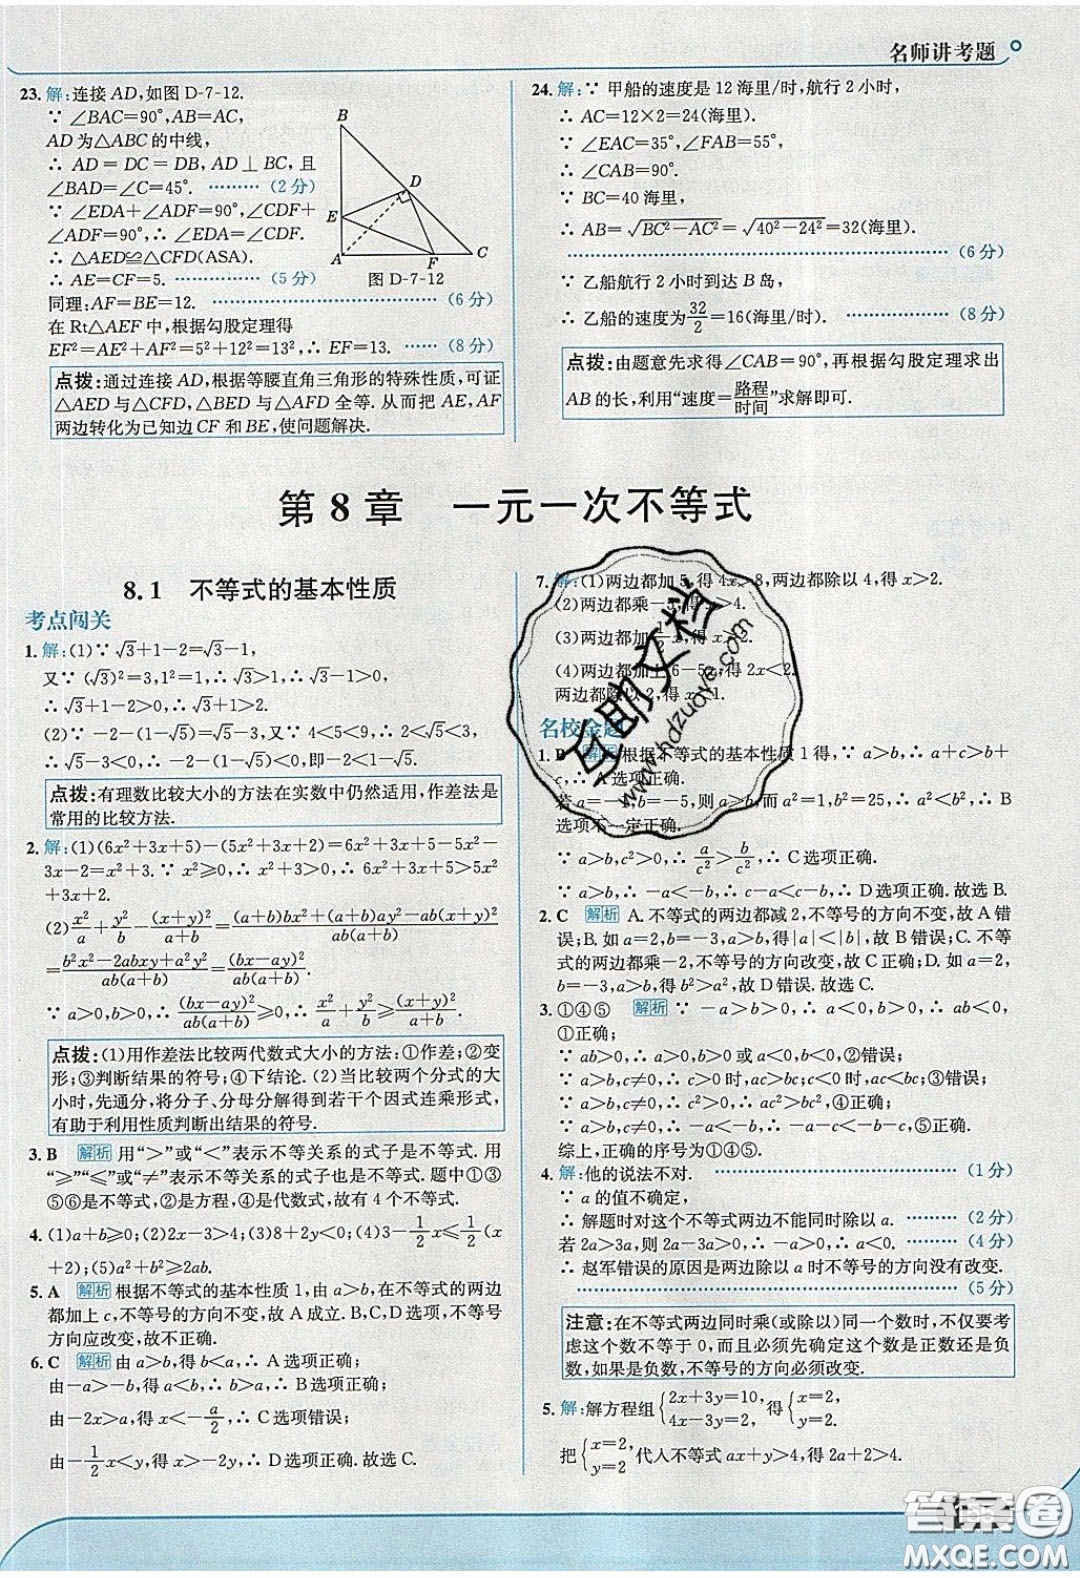 名师讲考题
23.解:连接 AD,如图 D-7-12.
∵ ∠BAC=90°,AB=AC,
AD为△ABC的中线,
∴ AD = DC = DB, AD ⊥ BC, 且
∠BAD=∠C=45°. ………(2分)
∵ ∠EDA+∠ADF=90°,∠CDF+
∠ADF=90°,∴ ∠EDA=∠CDF.
∴ △AED≌△CFD(ASA).
∴ AE=CF=5. ………(5分)
B
D
E
A
F
C
图 D-7-12
同理:AF=BE=12. ………(6分)
在 Rt△AEF 中,根据勾股定理得
EF²=AE²+AF²=5²+12²=13²,∴ EF=13. ……(8分)
点拨:通过连接 AD,根据等腰直角三角形的特殊性质,可证
△AED 与△CFD,△BED 与△AFD 全等. 从而把 AE,AF
两边转化为已知边 CF 和 BE,使问题解决.
24.解:∵ 甲船的速度是 12 海里/时,航行 2 小时,
∴ AC=12×2=24(海里).
∵ ∠EAC=35°,∠FAB=55°,
∴ ∠CAB=90°.
∵ BC=40 海里,
∴ AB=√(BC²-AC²)=√(40²-24²)=32(海里).
………(6分)
∵ 乙船航行 2 小时到达 B 岛,
∴ 乙船的速度为32/2=16(海里/时). ………(8分)
点拨:由题意先求得∠CAB=90°,再根据勾股定理求出
AB 的长,利用“速度=路程/时间”求解即可.
第 8 章 一元一次不等式
8.1 不等式的基本性质
考点闯关
1.解:(1)∵ √3+1-2=√3-1,
又∵ (√3)²=3,1²=1,∴ √3>1.
∴ √3+1-2>0,∴ √3+1>2.
(2)∵ -2-(1-√5)=-3+√5,又∵ 4<5<9,∴ 2<√5<3,
∴ √5-3<0,∴ -2-(1-√5)<0,即-2<1-√5.
点拨:有理数比较大小的方法在实数中仍然适用,作差法是
常用的比较方法.
2.解:(1)(6x²+3x+5)-(5x²+3x+2)=6x²+3x+5-5x²-
3x-2=x²+3. ∵ x²≥0,∴ x²+3>0,∴ 6x²+3x+5>5x²
+3x+2.
(2)x²/a+y²/b-(x+y)²/(a+b)=((a+b)bx²+(a+b)ay²-ab(x+y)²)/(ab(a+b))
=(b²x²-2abxy+a²y²)/(ab(a+b))=(bx-ay)²/(ab(a+b)).
∵ a>0,b>0,∴ (bx-ay)²/(ab(a+b))≥0,∴ x²/a+y²/b≥(x+y)²/(a+b).
点拨:(1)用作差法比较两代数式大小的方法:①作差;②变
形;③判断结果的符号;④下结论. (2)当比较两个分式的大
小时,先通分,将分子、分母分解得到若干个因式连乘形式,
有助于利用性质判断出结果的符号.
3. B 解析 用“>”或“<”表示不等关系的式子是不等式. 用
“≥”“≤”或“≠”表示不等关系的式子也是不等式. 题中①③
⑤⑥是不等式,②是方程,④是代数式,故有 4 个不等式.
4. (1)a+b≥0;(2)2x-3>4;(3)8+2y<0;(4)3-1/2x≤1/2(x
+2);(5)a²+b²≥2ab.
5. A 解析 根据不等式的基本性质 1,由 a>b,在不等式的两边
都加上 c,不等号的方向不变,故 A 成立. B,C,D 选项,不等号
方向应改变,故不正确.
6. C 解析 由 a>b,得 b<a,∴ A 选项正确;
由-a>-b,得 a<b,∴ B 选项正确;
由-2x>a,得 x<-a/2,∴ C 选项错误;
由-1/2x<y,得 x>-2y,∴ D 选项正确.
7.解:(1)两边都加 5,得 4x>8,两边都除以 4,得 x>2.
(2)两边都乘-3,得 >4.
(3)两边都加 得 x>2.
(4)两边都加上 6-5x,得 2x<2.
两边都除以 2,得 x<1.
名校金题
1. B 解析 根据不等式的基本性质 1 得,∵ a>b,∴ a+c>b+
c,∴ A 选项正确.
若 a=- ,b=-5,则 a>b,而 a²=1,b²=25,∴ a²<b²,∴ B
选项不一定正确.
∵ a>b,c²>0,∴ a/c²>b/c²,∴ C 选项正确.
∵ a>b,∴ -a<-b,∴ c-a<c-b,∴ D 选项正确.故选 B.
2. C 解析 A. 不等式的两边都减 2,不等号的方向不变,故 A 错
误;B. 如 a=2,b=-3,a>b,得|a|<|b|,故 B 错误;C. 不等
式的两边都乘-2,不等号的方向改变,故 C 正确;D. 如 a=2,
b=-3,a>b,得 b²>a²,故 D 错误.故选 C.
3. ①④⑤ 解析 ∵ -a>b>0,∴ a<0,b>0,∴ ab<0,
①正确;
∵ ab>0,∴ a>0,b>0 或 a<0,b<0,②错误;
∵ a>b,c≠0,∴ c>0 时,ac>bc;c<0 时,ac<bc;③错误;
∵ a>b,c≠0,∴ c²>0,∴ ac²>bc²,④正确;
∵ a>b,c≠0,∴ -a<-b,∴ -a-c<-b-c,⑤正确.
综上,正确的序号为①④⑤.
4.解:他的说法不对. ………(1分)
∵ a 的值不确定,
∴ 解题时对这个不等式两边不能同时除以 a. ………(2分)
若 2a>3a,则 2a-3a>0,∴ -a>0,∴ a<0. ………(4分)
∴ 赵军错误的原因是两边除以 a 时不等号的方向没有改变.
………(5分)
注意:在不等式两边同时乘(或除以)同一个数时,不仅要考
虑这个数不等于 0,而且必须先确定这个数是正数还是负
数,如果是负数,不等号的方向必须改变.
5.解:解方程组{2x+3y=10, 4x-3y=2,得{x=2, y=2.
把{x=2, y=2代入不等式 ax+y>4,得 2a+2>4,
互助文档
www.hdzuoye.com
答案圈
MXQE.COM